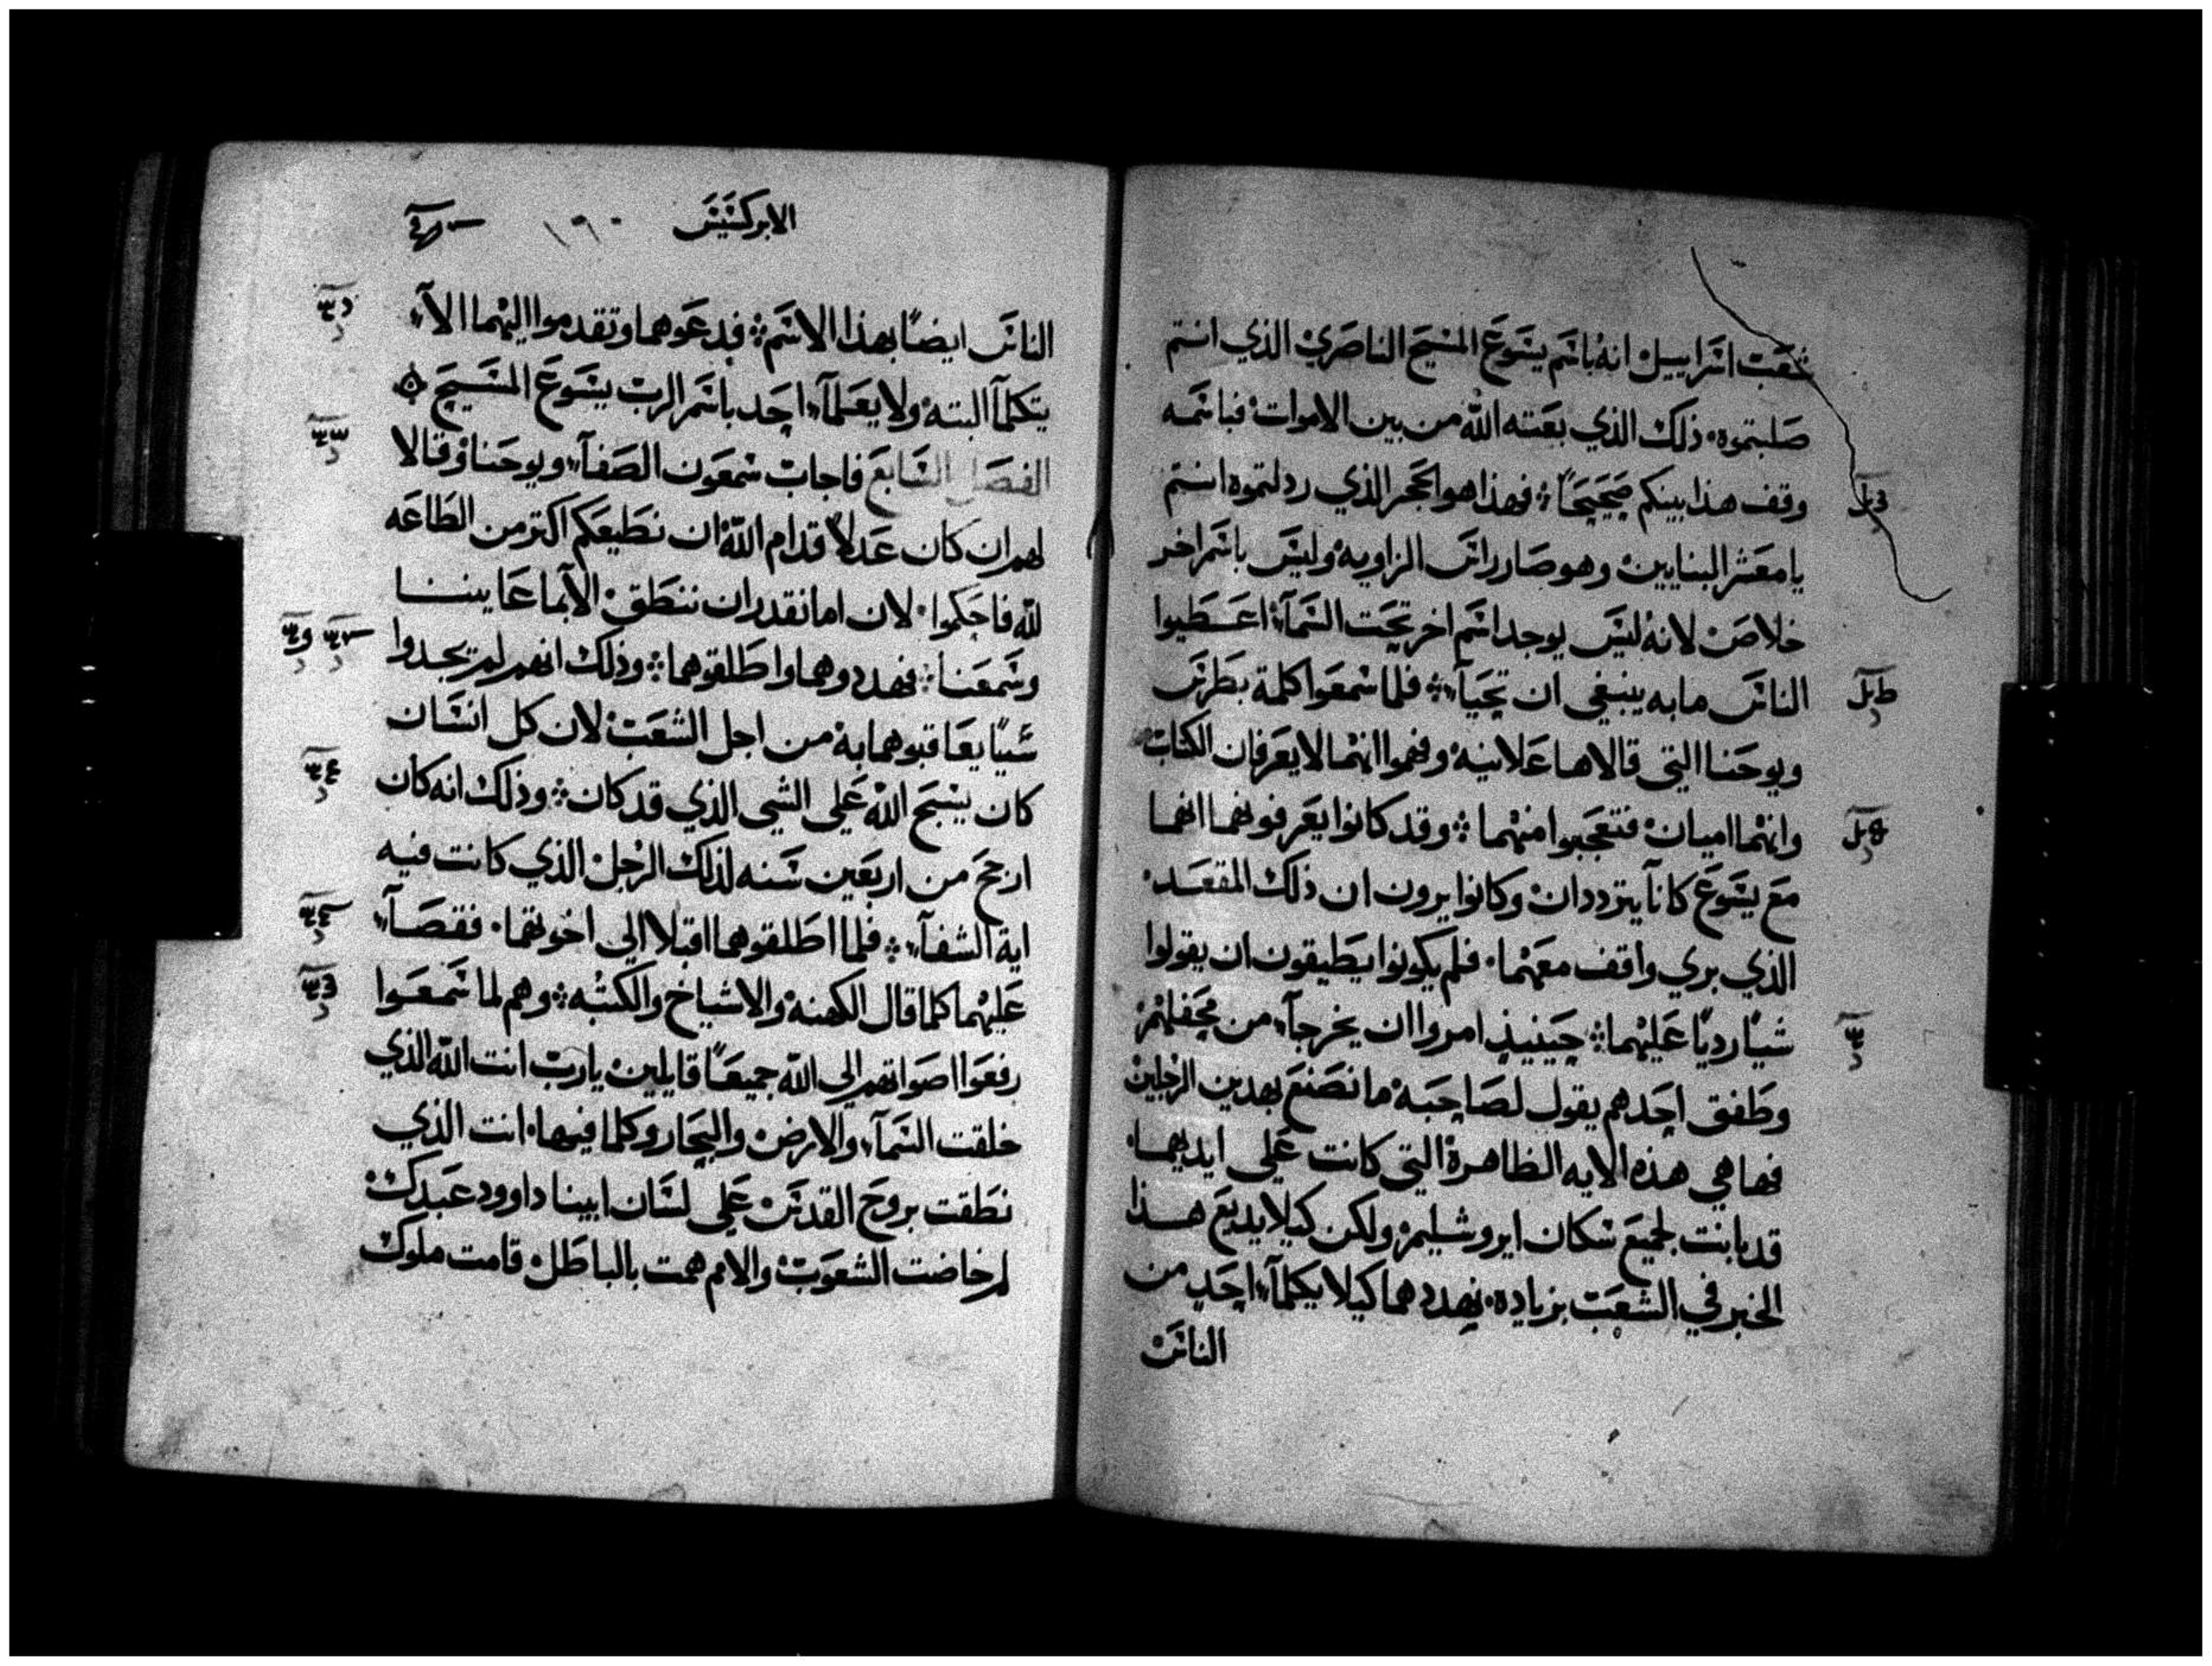 شعب اسراييل انه باسم يسوع المسيح الناصري الذي انتم
صلبتموه. ذلك الذي بعته الله من بين الاموات فباسمه
وقف هذا بينكم صحيحًا فهذا هو الحجر الذي ردلتموه انتم
يا معشر البنايين وهو صار راس الزاويه وليس باسم اخر
خلاص لانه ليس يوجد اسم اخر تحت السمآء اعطيوا
الناس ما به ينبغي ان تحيآء فلما سمعوا كلمة بطرس
ويوحنا التي قالاها علانيه وفهموا انهما لا يعرفان الكتاب
وانهما اميان فتعجبوا منهما وقد كانوا يعرفونهما انهما
مع يسوع كانآ يترددان وكانوا يرون ان ذلك المقعد.
الذي بري واقف معهما. فلم يكونوا يطيقون ان يقولوا
شيًا رديًا عليهما حينيذٍ امروا ان يخرجآء من محفلهم
وطفق احدهم يقول لصاحبه ما نصنع بهدين الرجلين
فها هي هذه الايه الظاهرة التي كانت علي ايديهما
قد بانت لجميع سكان ايروشليم ولكن كيلا يديع هذا
الخبر في الشعب بزياده. نهددهما كيلا يكلمآء احد من
الناس
الابركسيس ١٦٠
الناس ايضًا بهذا الاسم فدعوهما وتقدموا اليهما الآء
يتكلمآ البته ولا يعلمآء احد باسم الرب يسوع المسيح
الفصل السابع فاجاب شمعون الصفآء ويوحنا وقالا
لهم ان كان عدلاً قدام الله ان نطيعكم اكتر من الطاعه
لله فاحكموا. لان اما نقدر ان ننطق الآ بما عاينا
وسمعنا فهددوهما واطلقوهما وذلك انهم لم يجدوا
شيًا يعاقبوهما به من اجل الشعب لان كل انسان
كان يسبح الله علي الشي الذي قد كان وذلك انه كان
ارجح من اربعين سنه لذلك الرجل الذي كانت فيه
اية الشفآء فلما اطلقوهما اقبلا الي اخوتهما. فقصآء
عليهما كلما قال الكهنة والاشياخ والكتبه وهم لما سمعوا
رفعوا اصواتهم الي الله جميعًا قايلين يارب انت الله الذي
خلقت السمآء والارض والبحار وكلما فيها. انت الذي
نطقت بروح القدس علي لسان ابينا داوود عبدك
لم خاضت الشعوب والامم همت بالباطل قامت ملوك